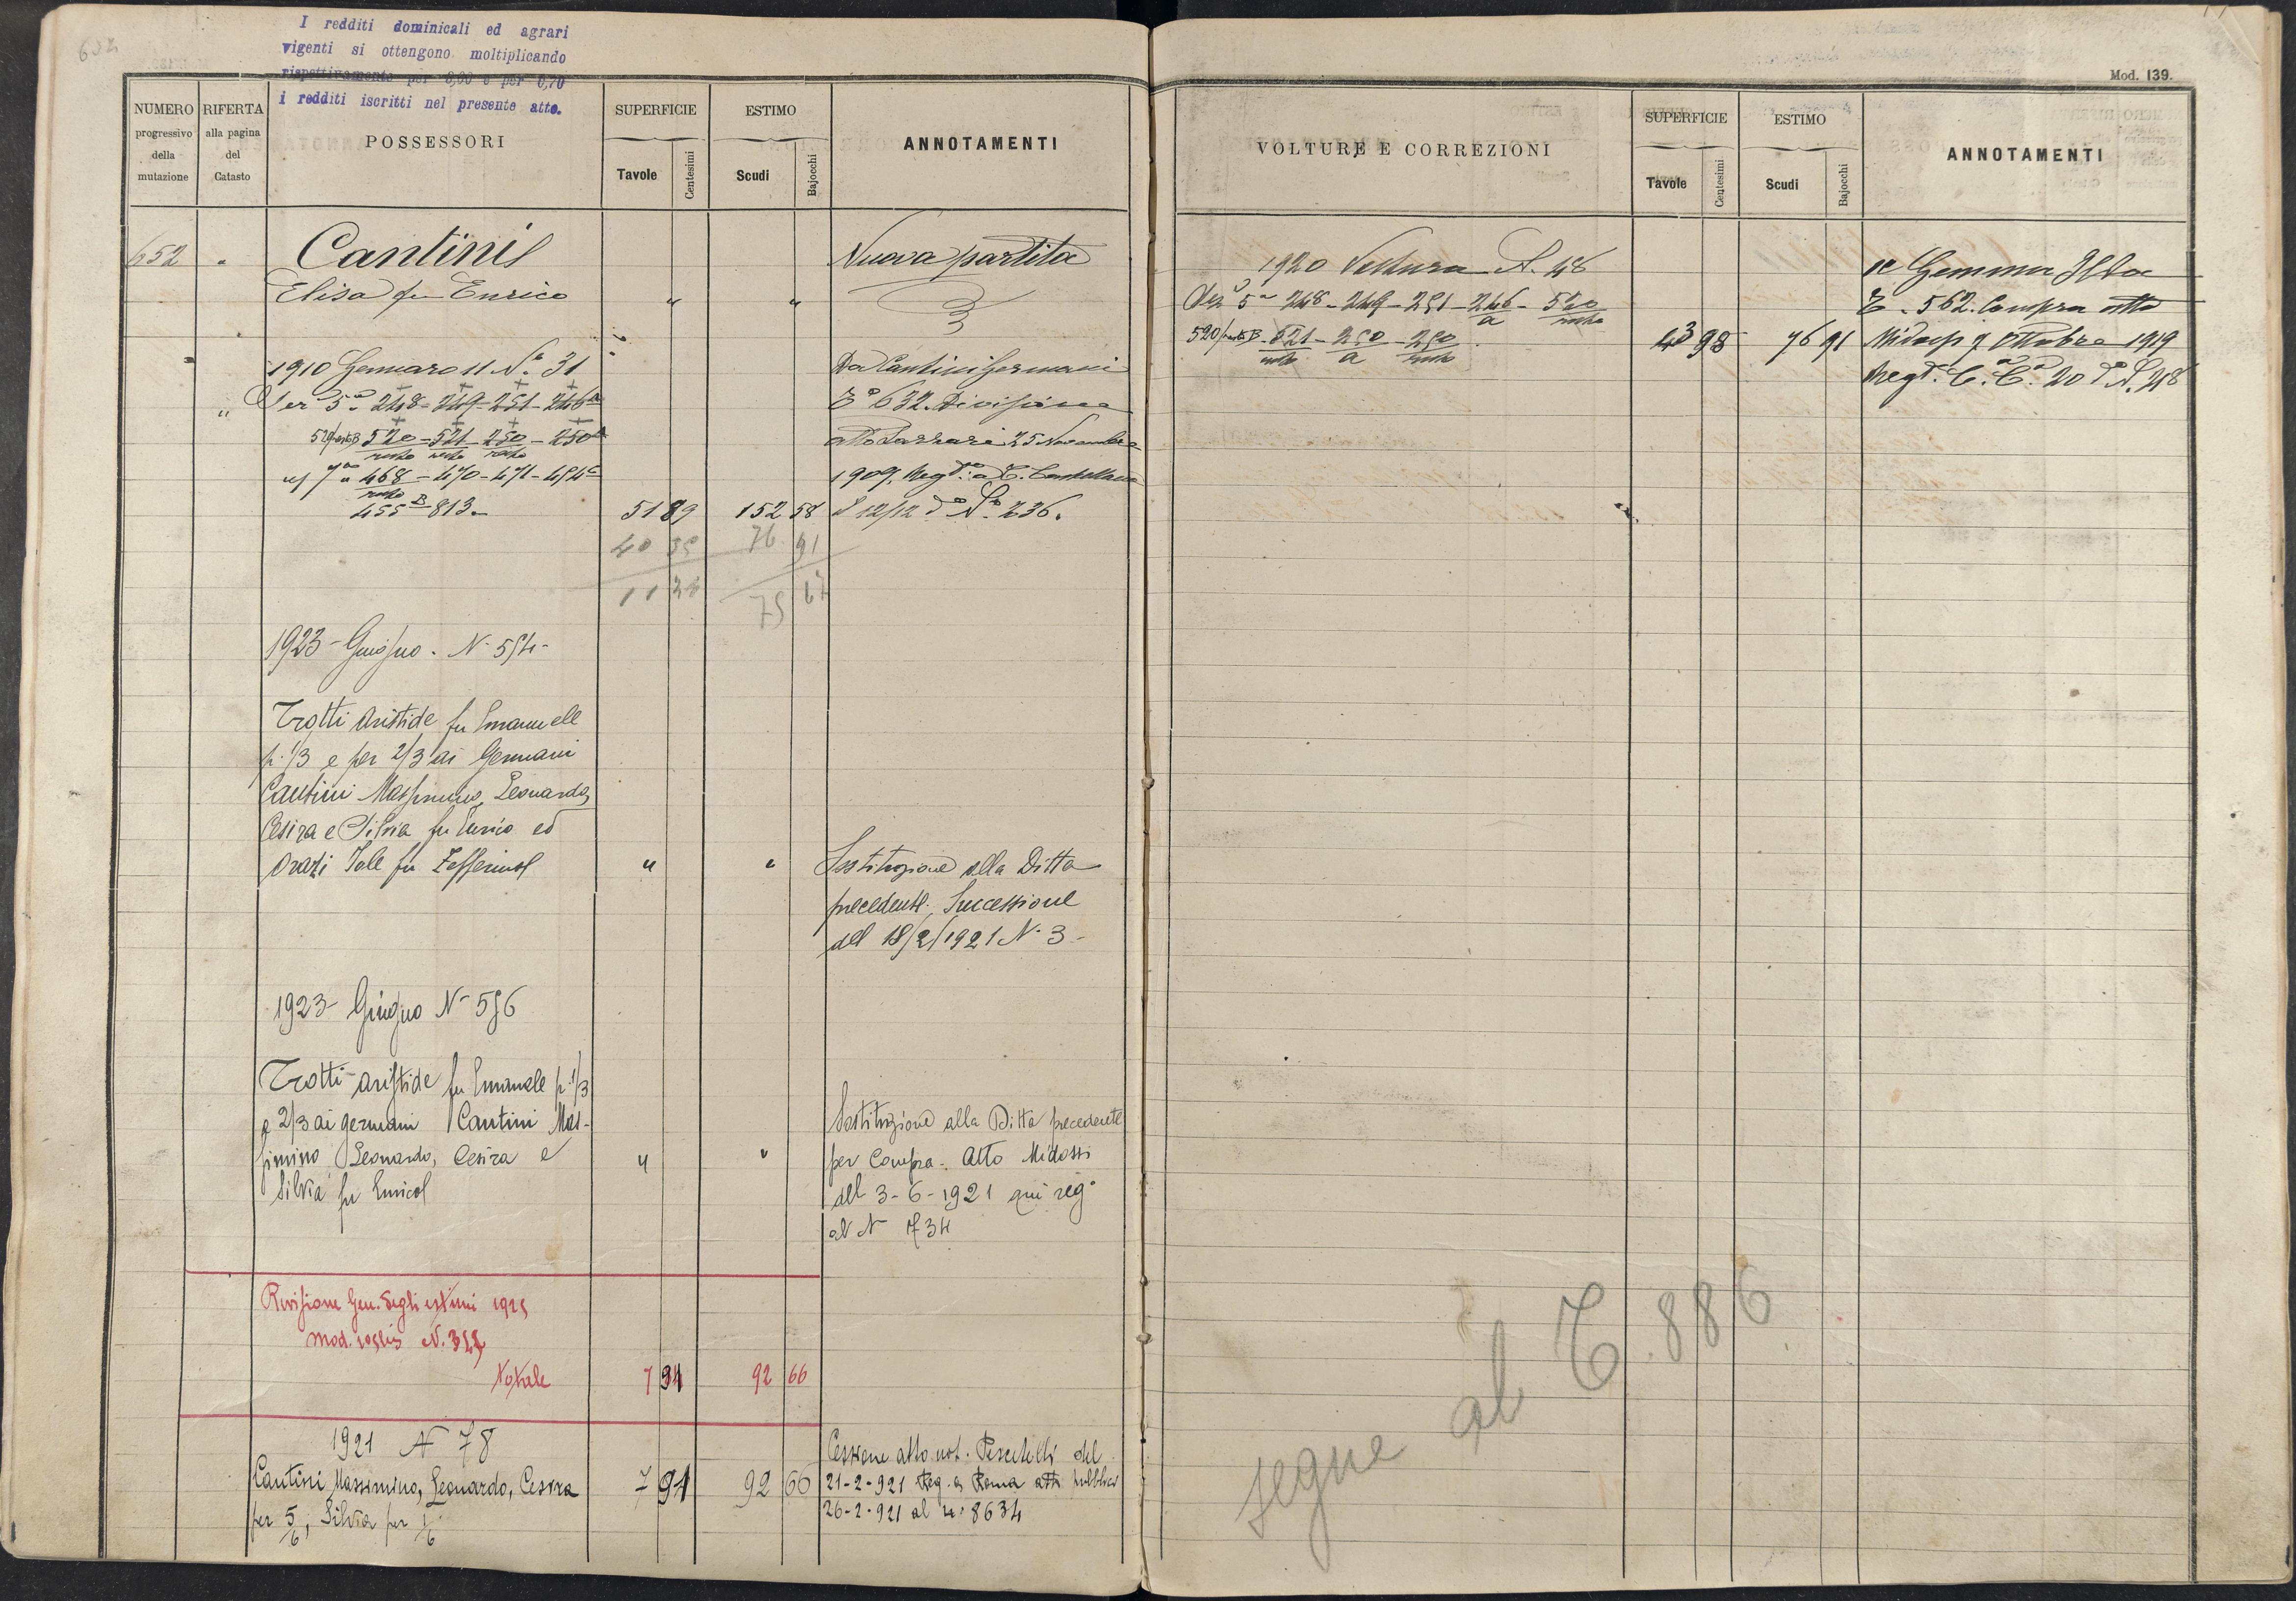 I redditi dominicali ed agrari
vigenti si ottengono moltiplicando
rispettivamente per 8,00 e per 0,70
i redditi iscritti nel presente atto.
NUMERO
progressivo
della
mutazione
RIFERTA
alla pagina
del
Catasto
POSSESSORI
SUPERFICIE
Tavole
Centesimi
ESTIMO
Scudi
Bajocchi
ANNOTAMENTI
652 "
Cantini
Elisa fu Enrico " "
Nuova partita
1910 Gennaro 11 N.° 31
Da Cantini Germani
Sez 5ª 248 - 249 - 251 - 246 a
T° 632. Divisione
520 resto B 520 resto - 521 resto - 250 resto - 250 a
atto 25 Novembre
7ª 468 resto - 470 - 471 - 454 c
1909. Reg.to a C. Castellana
455 B - 813 -
51 89 152 58
12/12 d.° N.° 236.
40 35 76 91
75 67
1923 - Giugno - N. 554 -
Trotti Aristide fu Emanuele
p. 1/3 e per 2/3 ai Germani
Cantini Massimino, Leonardo,
Cesira e Silvia fu Enrico ed
Orazi Iole fu Zefferino " "
Sostituzione alla Ditta
precedente, Successione
del 18/2/1921 N. 3 -
1923 - Giugno N 556
Trotti Aristide fu Emanuele p. 1/3
e 2/3 ai germani Cantini Mas-
simino Leonardo, Cesira e
Silvia fu Enrico " "
Sostituzione alla Ditta precedente
per Compra - Atto Midossi
del 3-6-1921 qui reg°
al N 734
Revisione Gen. degli estimi
mod.
Totale 7 94 92 66
1921 N 78
Cantini Massimino, Leonardo, Cesira
per 5/6; Silvia per 1/6
7 94 92 66
Cessione atto not. del
21-2-921 Reg. a Roma atti pubblici
26-2-921 al n. 8634
Mod. 139.
VOLTURE E CORREZIONI
SUPERFICIE
Tavole
Centesimi
ESTIMO
Scudi
Bajocchi
ANNOTAMENTI
1920 Voltura N. 48
Sez 5ª 248 - 249 - 251 - 246 a - 520 resto
520 resto B - 521 resto - 250 a - 250 resto
43 98 76 91
Gemma
T. 562. Compra atto
Midossi 7 Ottobre 1919
Reg.to C. C.na 20 d.° N. 218
segue al T. 886